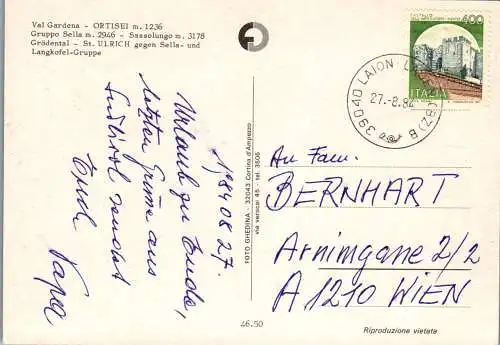 Val Gardena - ORTISEI m. 1236
Gruppo Sella m. 2946 - Sassolungo m. 3178
Grödental - St. ULRICH gegen Sella- und
Langkofel-Gruppe
1984 08 27.
Urlaub zu Ende,
letzten Grüsse aus
Südtirol sendet
Euch
Papa
FOTO GHEDINA - 32043 Cortina d'Ampezzo
via verocai 45 - tel. 3506
400
ITALIA
39040 LAION (BZ) B
27.-8.84
An Fam.
BERNHART
Arnimgasse 2/2
A 1210 WIEN
46.50
Riproduzione vietata